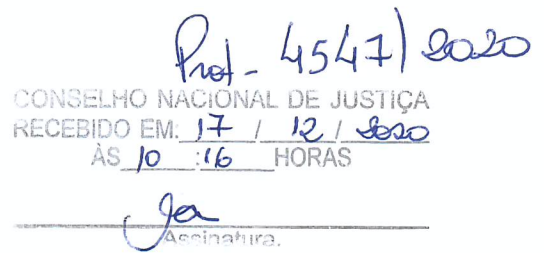 Prot- 4547/2020
CONSELHO NACIONAL DE JUSTIÇA
RECEBIDO EM: 17 / 12 / 2020
ÀS 10 :16 HORAS
Assinatura.